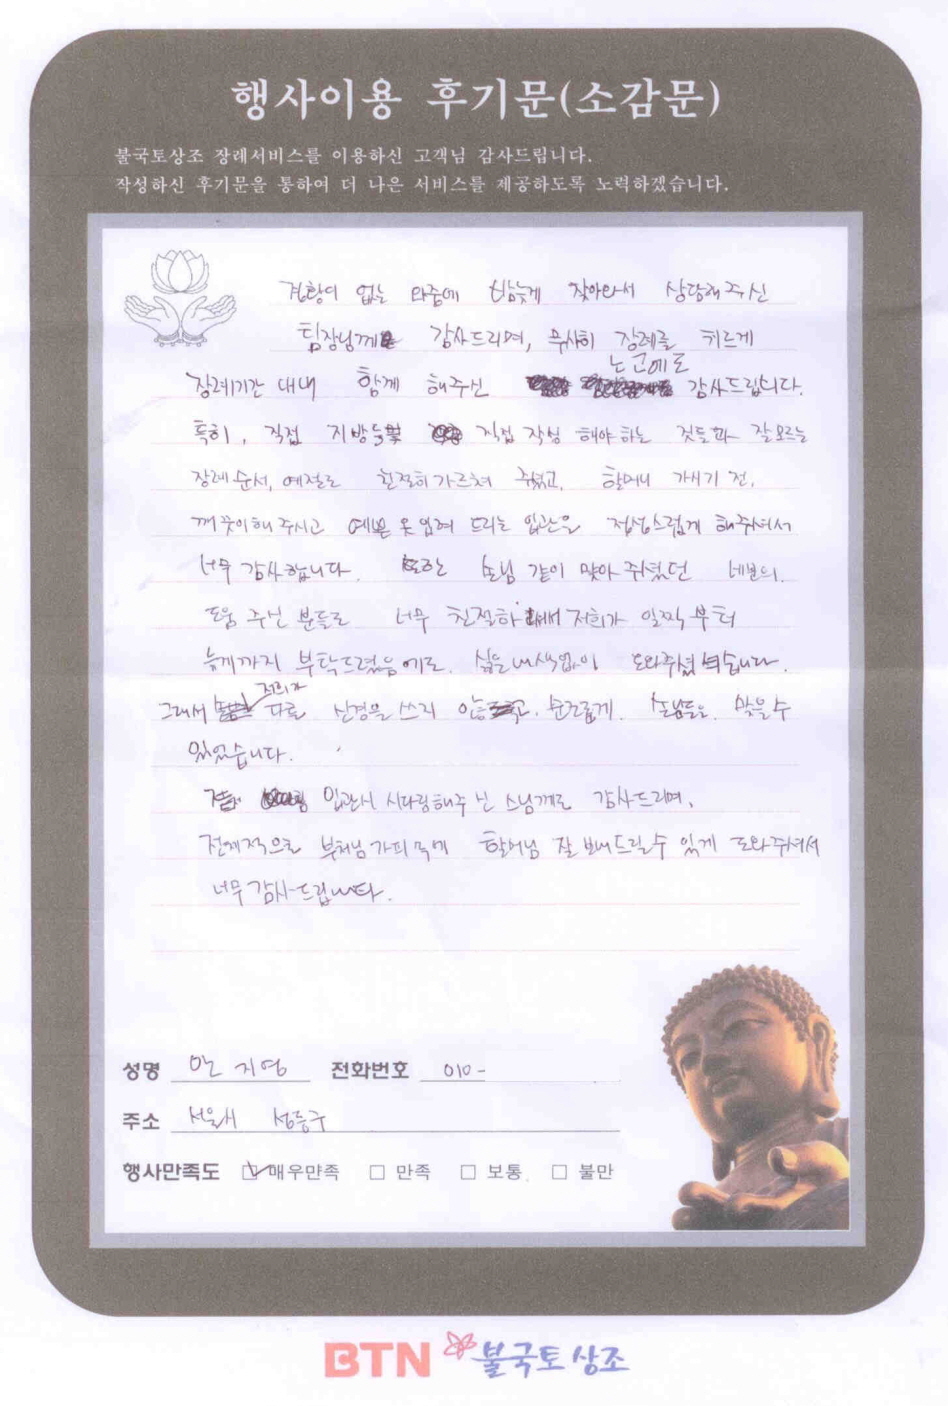 행사이용 후기문(소감문)
불국토상조 장례서비스를 이용하신 고객님 감사드립니다.
작성하신 후기문을 통하여 더 나은 서비스를 제공하도록 노력하겠습니다.
경황이 없는 와중에 밤늦게 찾아와서 상담해주신
팀장님께 감사드리며, 무사히 장례를 치르게
노고에도
장례기간 내내 함께 해주신 감사드립니다.
특히, 직접 지방 직접 작성 해야하는 것들과 잘모르는
장례순서, 예절도 친절히가르쳐 주셨고, 할머니 가시기 전,
깨끗이해주시고 예쁜 옷 입혀 드리는 입관을 정성스럽게 해주셔서
너무 감사합니다. 또한 손님 같이 맞아주셨던 네분의
도움 주신 분들도 너무 친절하 저희가 일찍부터
늦게까지 부탁드렸음에도 싫은내색없이 도와주셨습니다.
저희가
그래서 다른 신경을 쓰지 않고, 순조롭게 손님들을 맞을수
있었습니다.
입관시 시다림해주신 스님께도 감사드리며,
전체적으로 부처님가피 속에 할머님 잘 보내드릴수 있게 도와주셔서
너무감사드립니다.
성명 안지영 전화번호 010-
주소 서울시 성동구
행사만족도 매우만족 만족 보통 불만
BTN 불국토상조